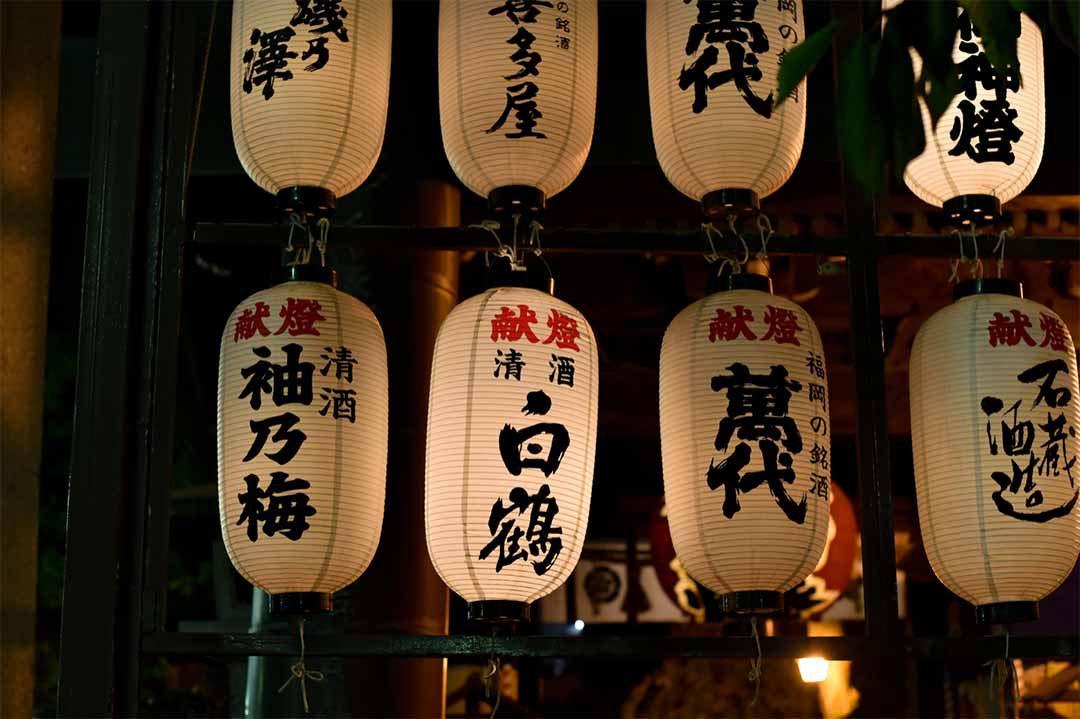 磯乃澤
の銘清
喜多屋
岡の銘酒
萬代
神燈
献燈
清酒
袖乃梅
献燈
清酒
白鶴
献燈
福岡の銘酒
萬代
献燈
石蔵
酒造